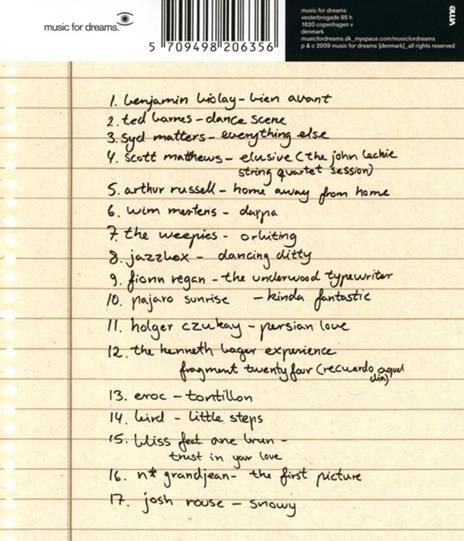 music for dreams.
5 709498 206356
music for dreams
vesterbrogade 95 h
1620 copenhagen v
denmark
musicfordreams.dk_myspace.com/musicfordreams
p & c 2009 music for dreams [denmark]_all rights reserved
vme
1. benjamin biolay - bien avant
2. ted barnes - dance scene
3. syd matters - everything else
4. scott matthews - elusive (the john leckie
string quartet session)
5. arthur russell - home away from home
6. wim mertens - darpa
7. the weepies - orbiting
8. jazzbox - dancing ditty
9. fionn regan - the underwood typewriter
10. pajaro sunrise - kinda fantastic
11. holger czukay - persian love
12. the kenneth bager experience
fragment twenty four (recuerdo aquel
dia)
13. eroc - tortillon
14. bird - little steps
15. bliss feat. ane brun -
trust in your love
16. n* grandjean - the first picture
17. josh rouse - snowy